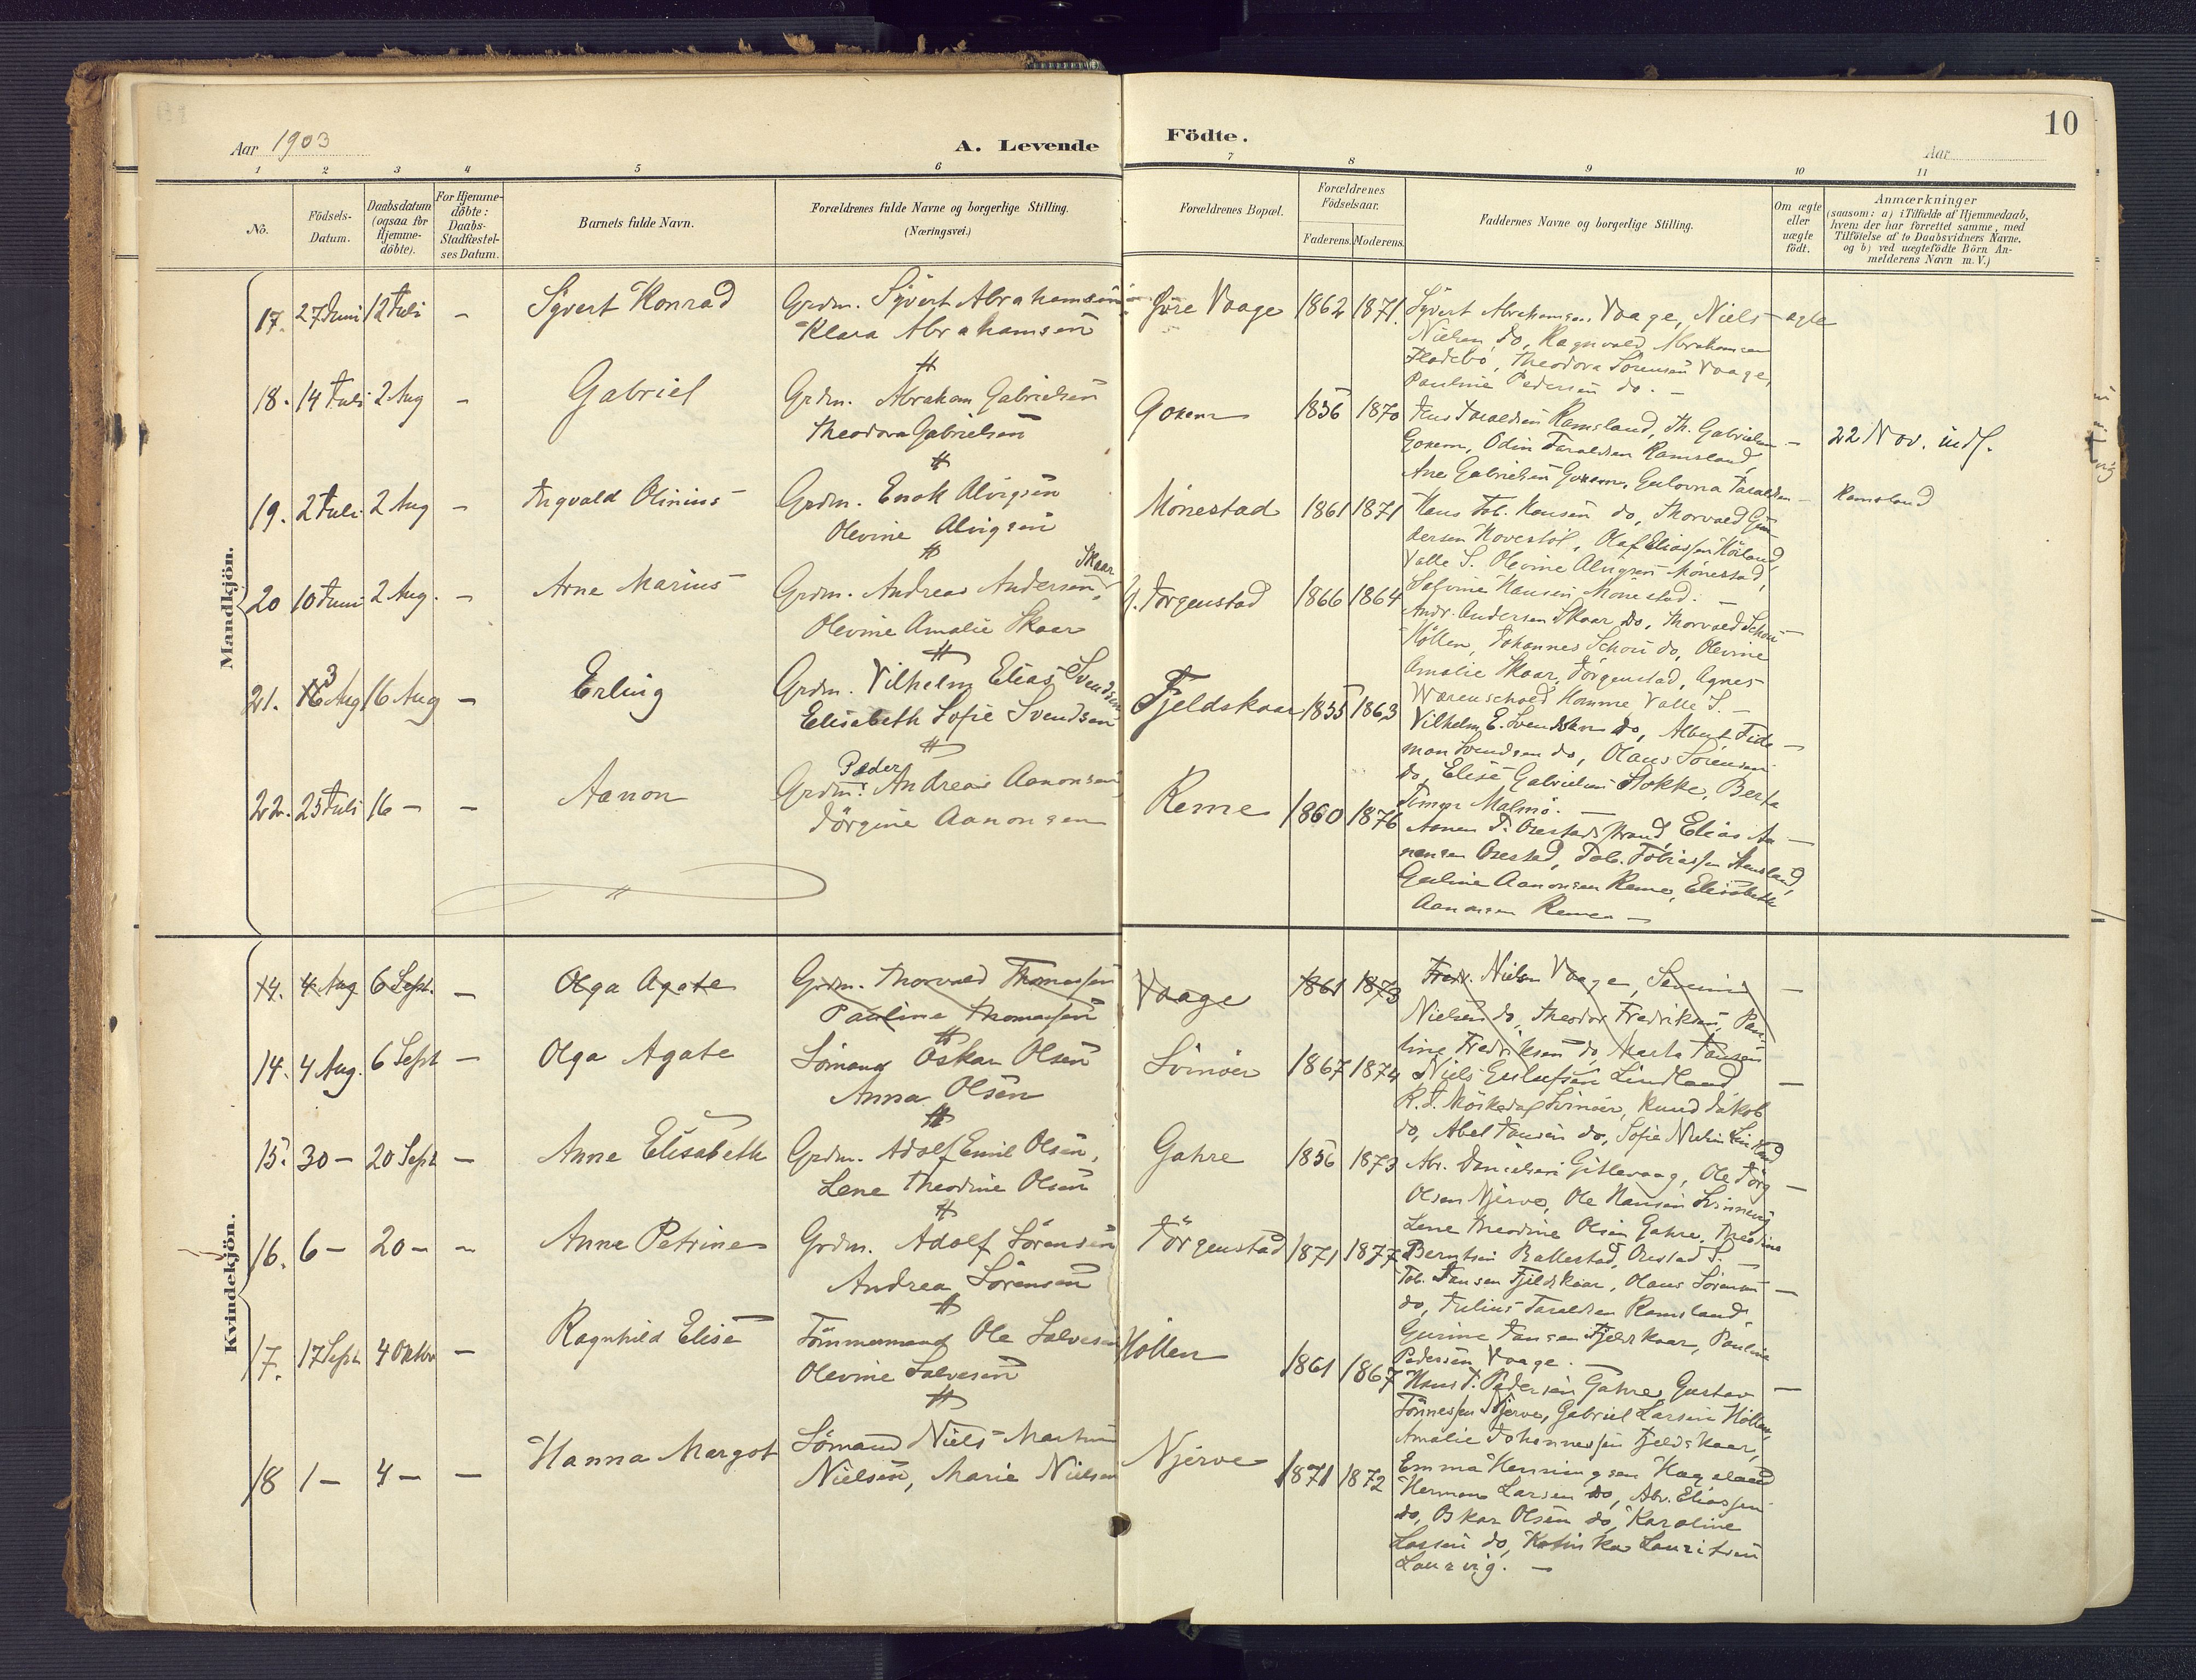 10
Aar 1903
A. Levende Födte.
Aar
1 2 3 4 5 6 7 8 9 10 11
No.
Födsels-Datum.
Daabsdatum (ogsaa for Hjemme-döbte).
For Hjemme-döbte: Daabs-Stadfæstel-ses Datum.
Barnets fulde Navn.
Forældrenes fulde Navne og borgerlige Stilling.
(Næringsvei.)
Forældrenes Bopæl.
Forældrenes Födselsaar.
Faderens. Moderens.
Faddernes Navne og borgerlige Stilling.
Om ægte eller uægte födt.
Anmærkninger
(saasom: a) i Tilfælde af Hjemmedaab, hvem der har forrettet samme, med Tilföielse af to Daabsvidners Navne, og b) ved uægtefödte Börn Anmelderens Navn m. V.)
Mandkjön.
17. 27 Juni 12 Juli - Syvert Konrad Grdm. Syvert Abrahamsen Klara Abrahamsen Øvre Vaage 1862 1871 ægte
Syvert Abrahamsen Vaage, Niels
Nielsen do, Ragnvald Abrahamsen
Fladebö, Theodora Sörensen Vaage,
Pauline Pedersen do. -
18. 14 Juli 2 Aug - Gabriel Grdm. Abraham Gabrielsen Theodora Gabrielsen 1856 1870 - 22 Nov. indf.
Jens Taraldsen Ramsland, Th. Gabrielsen
Odin Taraldsen Ramsland,
Ane Gabrielsen Gulovna Taraldsen - Ramsland
19. 2 Juli 2 Aug - Ingvald Olinius Grdm. Enok Alvigsen Olevine Alvigsen Mönestad 1861 1871
Hans Tob. Hansen do, Thorvald Gun-
dersen Hovestöl, Olaf Eliassen Höiland,
Valle S. Olevine Alvigsen Mönestad,
Salvine Hansen Mönestad. -
20 10 Juni 2 Aug. - Arne Marius Grdm. Andreas Andersen Skaar, Olevine Amalie Skaar Y. Jörgenstad 1866 1864
Andr. Andersen Skaar do, Thorvald Schou
Höllen, Johannes Schou do, Olevine
Amalie Skaar Jörgenstad, Agnes
Wærenschold Homme Valle S. -
21. 13 Aug 16 Aug - Erling Grdm. Vilhelm Elias Svendsen Elisabeth Sofie Svendsen Fjeldskaar 1855 1863
Vilhelm E. Svendsen do, Albert Tide-
man Svendsen do, Olaus Sörensen
do, Elise Gabrielsen Stokke, Berta
Malmö. -
22. 25 Juli 16 - - Aanon Grdm. Peder Andreas Aanonsen, Jörgine Aanonsen Reme 1860 1876
Aanen J. Orestad Strand, Elias Aa-
nensen Orestad, Tob. Tobiassen Stensland,
Guline Aanonsen Reme, Elisabeth
Aanonsen Reme -
Kvindekjön.
14. 4 Aug 6 Sept. - Olga Agate Grdm. Thorvald Thomassen Pauline Thomassen Vaage 1861 1873 -
Fredr. Nielsen Vaage, Severin
Nielsen do, Theodor Fredriksen, Pau-
line Fredriksen do, Marta Jansen
14. 4 Aug. 6 Sept - Olga Agate Sömand Oskar Olsen Anna Olsen Svinöer 1867 1874 -
Niels Gulufsen Lindland
R. J. Möskedal Svinöer, Knud Jakob
do, Abel Jansen do, Sofie Nielsen Lindland
15. 30 - 20 Sept - Anne Elisabeth Grdm. Adolf Emil Olsen, Lene Theodine Olsen Gahre 1856 1873 -
Abr. Danielsen Gitlevaag, Ole Jörg
Olsen Njerve, Ole Hansen Svinneng
Lene Theodine Olsen Gahre, Theodine
Berntsen Ballestad, Orestad S. -
16. 6 - 20 - - Anne Petrine Grdm. Adolf Sörensen Andrea Sörensen Jörgenstad 1871 1877
Tob. Jansen Fjeldskaar, Olaus Sörensen -
do, Julius Taraldsen Ramsland
Gurine Jansen Fjeldskaar, Pauline
Pedersen Vaage. -
17. 17 Sept 4 Oktbr - Ragnhild Elise Tömmermand Ole Salvesen Olevine Salvesen Höllen 1861 1867 -
Hans T. Pedersen Gahre, Gustav
Tönnessen Njerve, Gabriel Larsen Höllen,
Amalie Johannessen Fjeldskaar,
Emma Henningsen Hageland
18 1 - 4 - - Hanna Margot Sömand Niels Martin Nielsen, Marie Nielsen Njerve 1871 1872
Herman Larsen do, Abr. Eliassen
do, Oskar Olsen do, Karoline
Larsen do, Kathinka Lauritsen
Laurvig. -